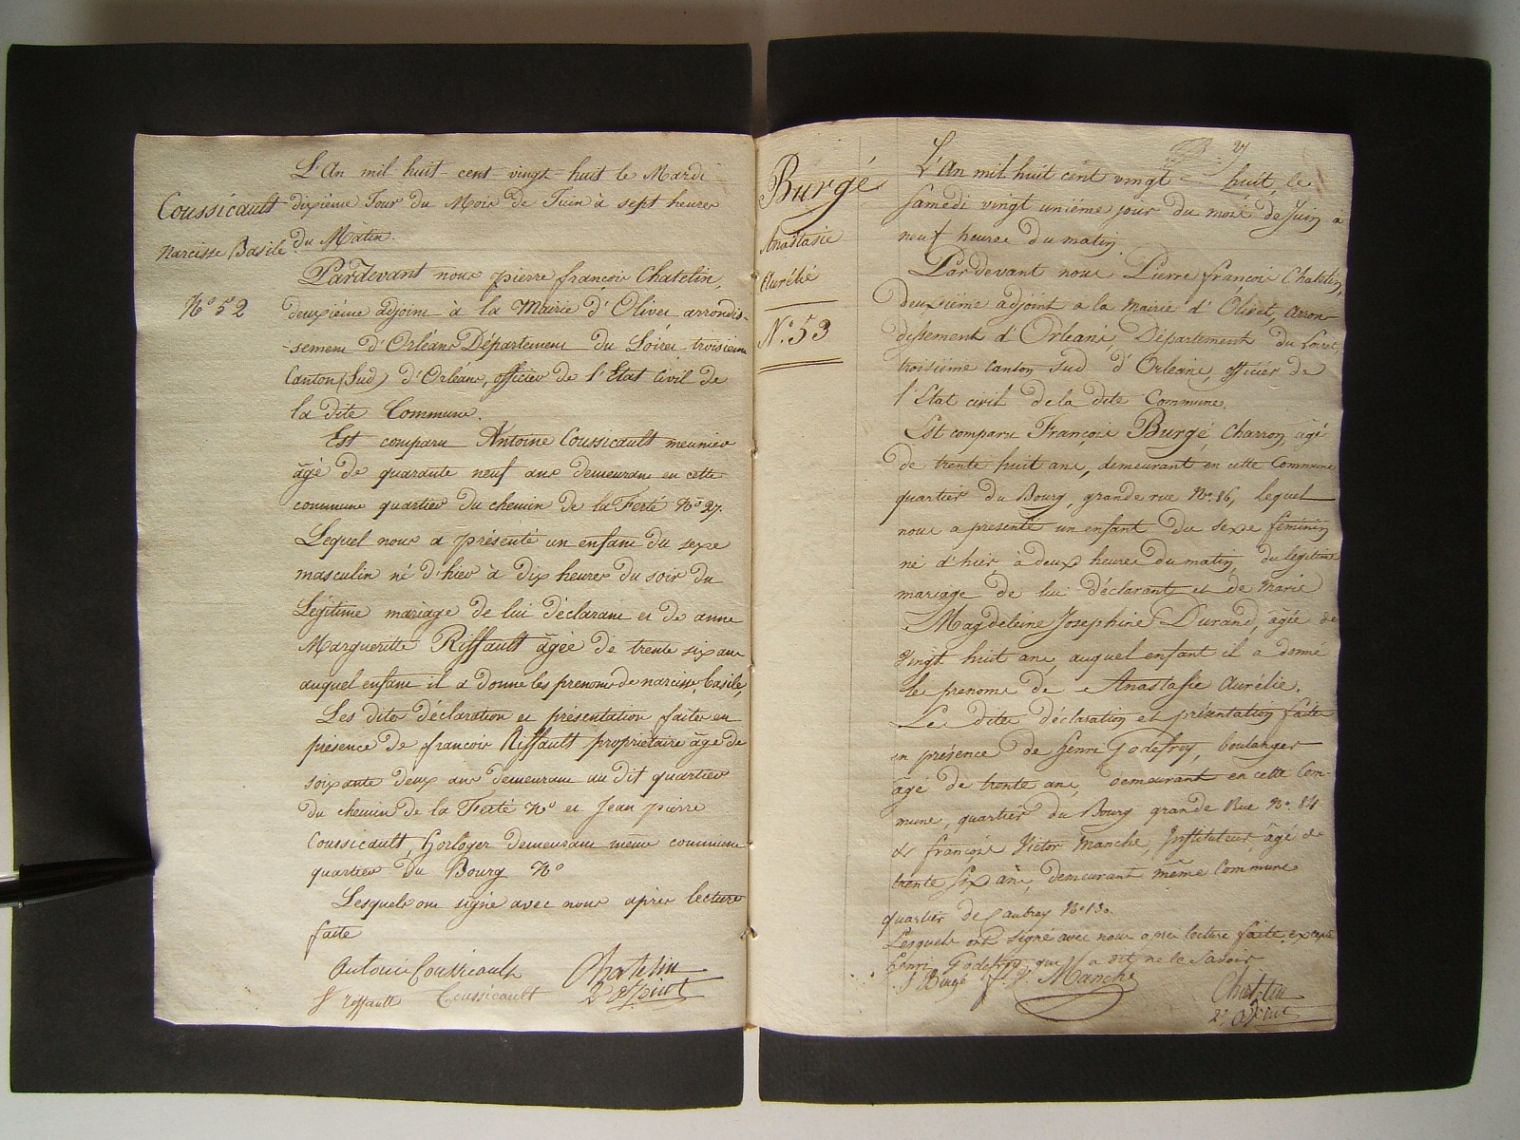 L'An mil huit-cent-vingt-huit le Mardi
Coussicault
dixième Jour du Mois de Juin à sept heures
Narcisse Basile
du Matin.
Pardevant nous pierre françois Chatelin,
N° 52
deuxième adjoint à la Mairie d'Olivet arrondis-
-sement d'Orléans Département du Loiret troisieme
Canton (Sud) d'Orléans, officier de l'Etat Civil de
la dite Commune.
Est comparu Antoine Coussicault meunier
âgé de quarante neuf ans demeurant en cette
commune quartier du chemin de la Ferté N° 27.
Lequel nous a présenté un enfant du sexe
masculin né d'hier à dix heures du soir du
Légitime mariage de lui déclarant et de anne
Marguerite Riffault âgée de trente six ans
auquel enfant il a donné les prenoms de narcisse, basile,
Les dites déclaration et présentation faites en
présence de francois Riffault propriétaire âgé de
soixante deux ans demeurant au dit quartier
du chemin de la Ferté N° et Jean pierre
Coussicault, horloger demeurant même commune
quartier du Bourg N°
Lesquels ont signé avec nous après lecture
faite
Antoine Coussicault Chatelin
f riffault Coussicault 2e adjoint
27
Burgé
Anastasie
Aurélie
N° 53
L'An mil huit cent vingt = huit, le
Samedi vingt unième jour du mois de Juin à
neuf heures du matin.
Pardevant nous Pierre françois Chatelin,
deuxième adjoint a la mairie d'Olivet, arron-
dissement d'Orleans, Département du Loiret,
troisième canton sud d'Orleans, officier de
l'Etat civil de la dite Commune.
Est comparu François Burgé, Charron, âgé
de trente huit ans, demeurant en cette Commune
quartier du Bourg, grande rue N° 86, lequel
nous a présenté un enfant du sexe féminin
né d'hier, à deux heures du matin, du légitime
mariage de lui déclarant et de Marie
Magdeleine Josephine Durand, âgée de
vingt huit ans, auquel enfant il a donné
les prenoms de Anastasie Aurélie.
Les dites déclaration et présentation faites
en présence de henri Godefroy, boulanger
agé de trente ans, demeurant en cette Com-
mune, quartier du Bourg grande Rue N° 84
& françois Victor Manche, Instituteur, âgé de
trente six ans, demeurant même Commune
quartier de N° 130
Lesquels ont signé avec nous après lecture faite, excepté
henri Godefroy, qui a dit ne le savoir
f Burgé f. V. Manche Chatelin
2e adjoint